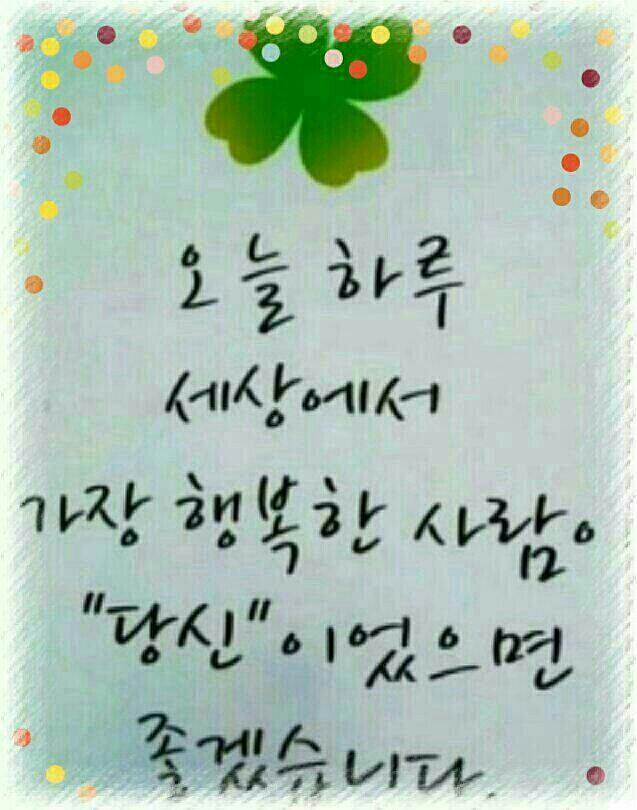 오늘 하루
세상에서
가장 행복한 사람。
"당신"이었으면
좋겠습니다.